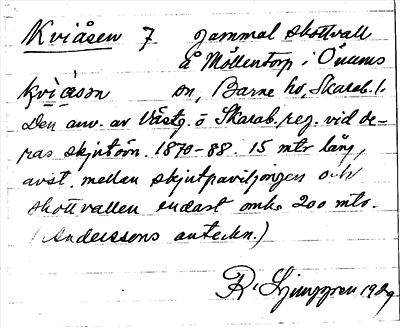 Kviåsen 7 gammal skottvall
å Möllentorp i Önums
kvìåson sn, Barne hd, Skarab. l.
Den anv. av Västg. o Skarab. reg. vid de-
ras skjutövn. 1870-88. 15 mtr lång,
avst. mellan skjutpaviljongen och
skottvallen endast omkr 200 mtr.
(Anderssons anteckn.)
R. Ljunggren 1929